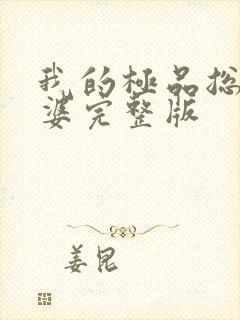 我的極品总
婆完整版
姜昆